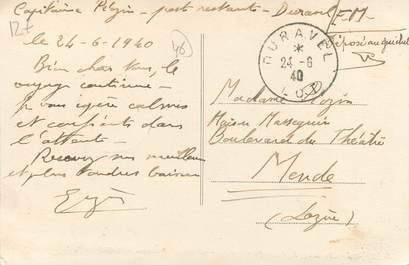 Capitaine - poste restante - Duravel
F.M.
12F
46
le 24-6-1940
Bien chers tous, le
voyage continue -
Je vous espère calmes
et confiants dans
l'attente -
Recevez nos meilleurs
et plus tendres baisers
DURAVEL
*
24 - 6
40
LOT
Déposé au guichet
Madame
Maison Massequin
Boulevard du Théâtre
Mende
(Lozère)